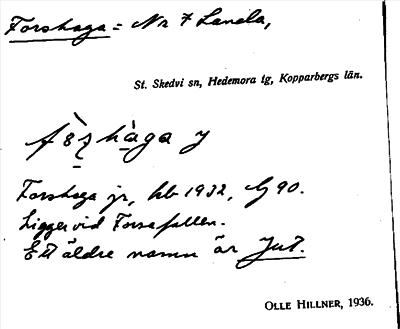 Forshaga = Nr 7 Landa,
St. Skedvi sn, Hedemora tg, Kopparbergs län.
Forshaga jr, hb 1932, G 90.
Ligger vid Forsafallen.
Ett äldre namn är Jut.
OLLE HILLNER, 1936.